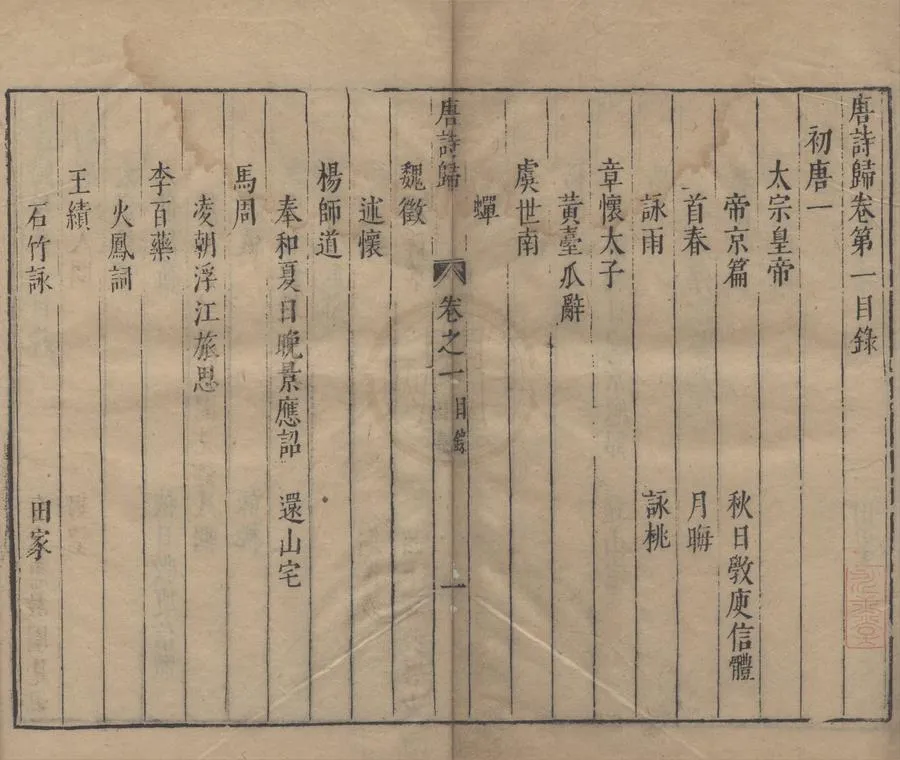 唐詩歸卷第一目錄
初唐一
太宗皇帝
帝京篇 秋日斆庾信體
首春 月晦
詠雨 詠桃
章懷太子
黃臺瓜辭
虞世南
蟬
唐詩歸 卷之一 目錄 一
魏徵
述懷
楊師道
奉和夏日晚景應詔 還山宅
馬周
凌朝浮江旅思
李百藥
火鳳詞
王績
石竹詠 田家